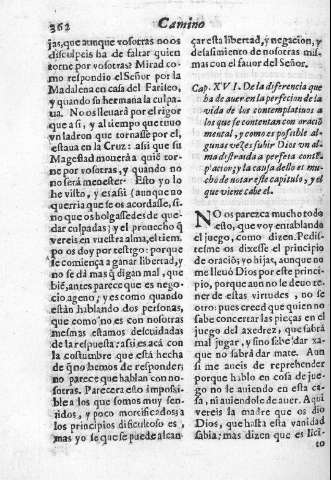 362
Camino
jas, que aunque vosotras no os
disculpeis ha de faltar quien
torne por vosotras? Mirad co-
mo respondio el Señor por la
Madalena en casa del Fariseo,
y quando su hermana la culpa-
ua. No os lleuarà por el rigor
que a si, y al tiempo que tuuo
vn ladron que tornasse por el,
estaua en la Cruz: assi que su
Magestad mouerà a quiē tor-
ne por vosotras, y quando no
no serà menester. Esto yo lo
he visto, y es assi (aunque no
querria que se os acordasse, si-
no que os holgassedes de que-
dar culpadas; y el prouecho q̄
vereis en vuestra alma, el tiem-
po os doy por testigo: porque
se comiença a ganar libertad, y
no se dà mas q̄ digan mal, que
biē, antes parece que es nego-
cio ageno; y es como quando
estàn hablando dos personas,
que como no es con nosotras
mesmas estamos descuidadas
de la respuesta: assi es acà con
la costumbre que està hecha
de q̄ no hemos de responder,
no parece que hablan con no-
sotras. Parecera esto impossi-
ble a los que somos muy sen-
tidos, y poco mortificados: a
los principios dificultoso es,
mas yo se que se puede alcan-
çar esta libertad, y negacion, y
desasimiento de nosotras mis-
mas con el fauor del Señor.
Cap. XVI. De la diferencia que
ha de auer en la perfecion de la
vida de los contemplatiuos a
los que se contentan con oraciō
mental, y como es possible al-
gunas vezes subir Dios vn al-
ma distraida a perfeta conte-
placion; y la causa dello es mu-
cho de notar este capitulo, y el
que viene cabe el.
NO os parezca mucho todo
esto, que voy entablando
el juego, como dizen. Pedis-
tesme os dixesse el principio
de oraciō; yo hijas, aunque no
me lleuò Dios por este princi-
pio, porque aun no le deuo te-
ner de estas virtudes, no se
otro: pues creed que quien no
sabe concertar las pieças en el
juego del axedrez, que sabrà
mal jugar, y sino sabe dar xa-
que no sabrà dar mate. Aun
si me aueis de reprehender
porque hablo en cosa de jue-
go no le auiendo en esta ca-
sa, ni auiendole de auer. Aqui
vereis la madre que os dio
Dios, que hasta esta vanidad
sabia; mas dizen que es lici-
to